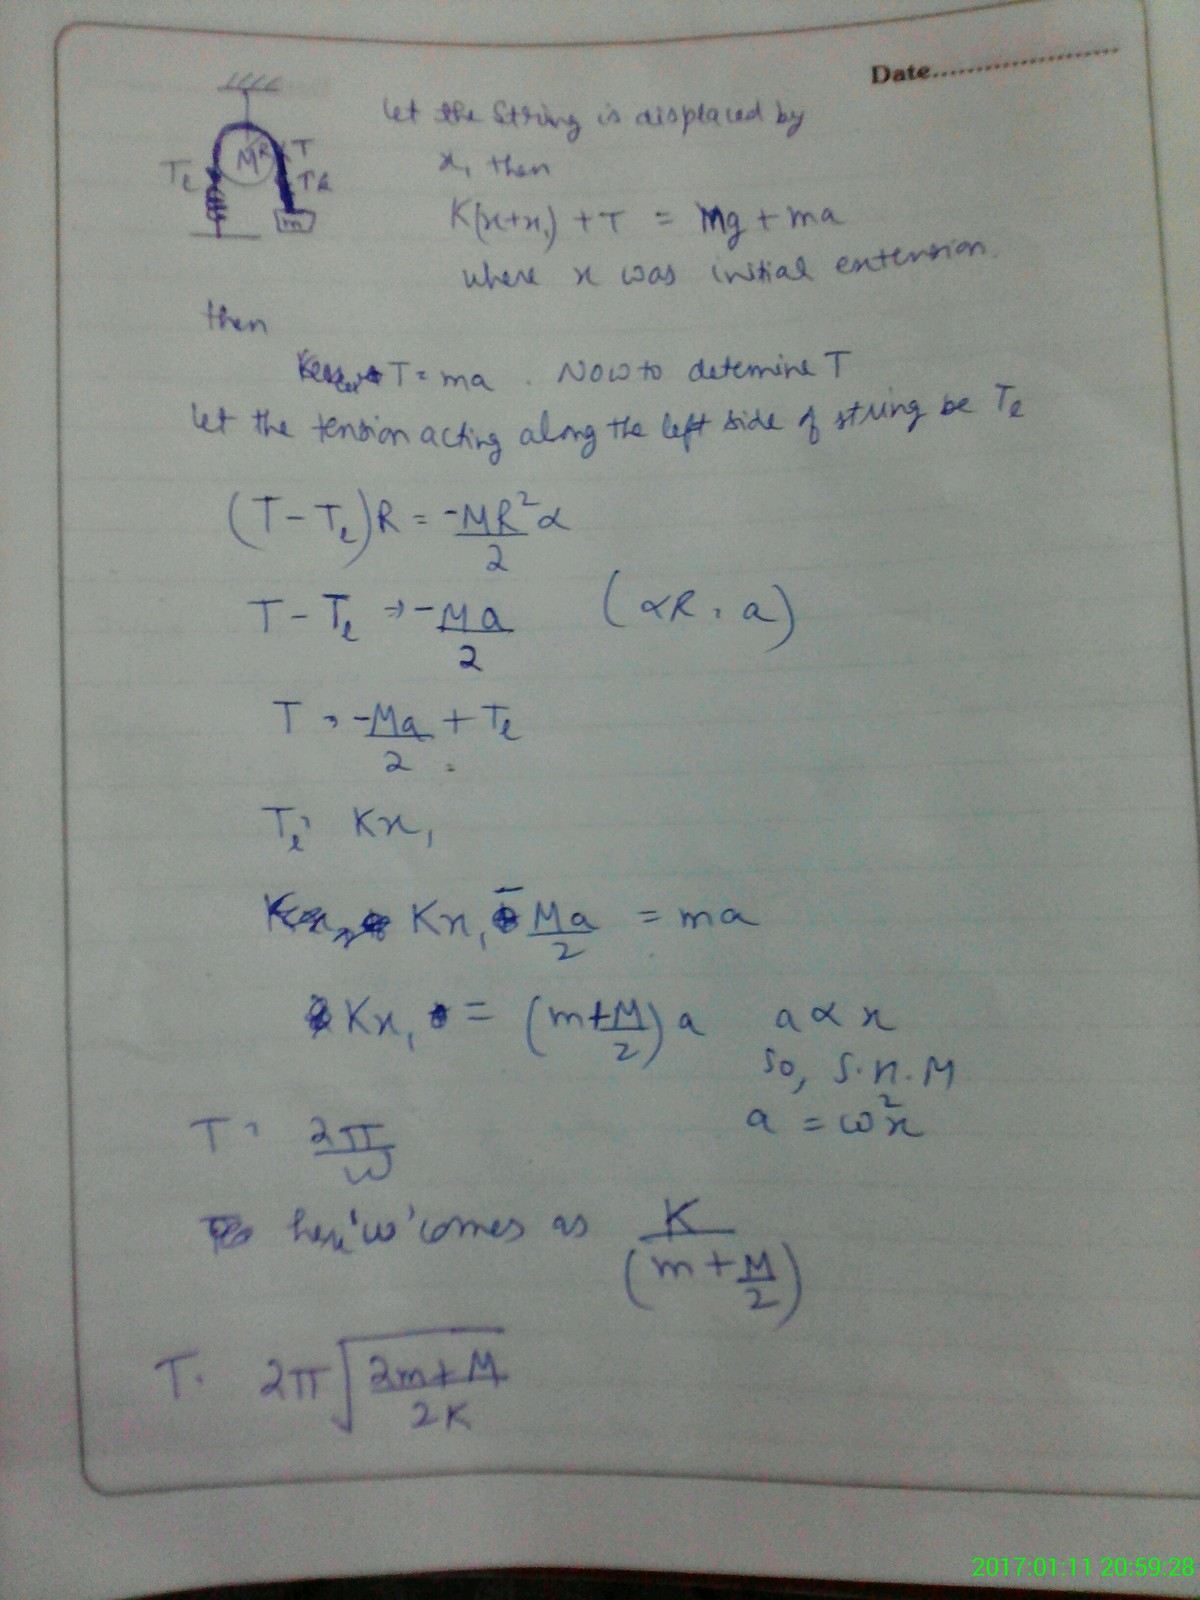 Date
Let the string is displaced by
x₁ then
T
MR
Tℓ
m
K(x+x₁) + T = Mg + ma
where x was initial extension.
then
T = ma . Now to detemine T
Let the tension acting along the left side of string be Tℓ
(T - Tℓ)R = -MR²α/2
T - Tℓ ⇒ -Ma/2 (αR = a)
T = -Ma/2 + Tℓ
Tℓ = Kx₁
Kx₁ - Ma/2 = ma
Kx₁ = (m+M/2)a a ∝ x
so, S.H.M
T = 2π/ω a = ω²x
here 'ω' comes as K/(m + M/2)
T = 2π√(2m+M/2K)
2017:01:11 20:59:28